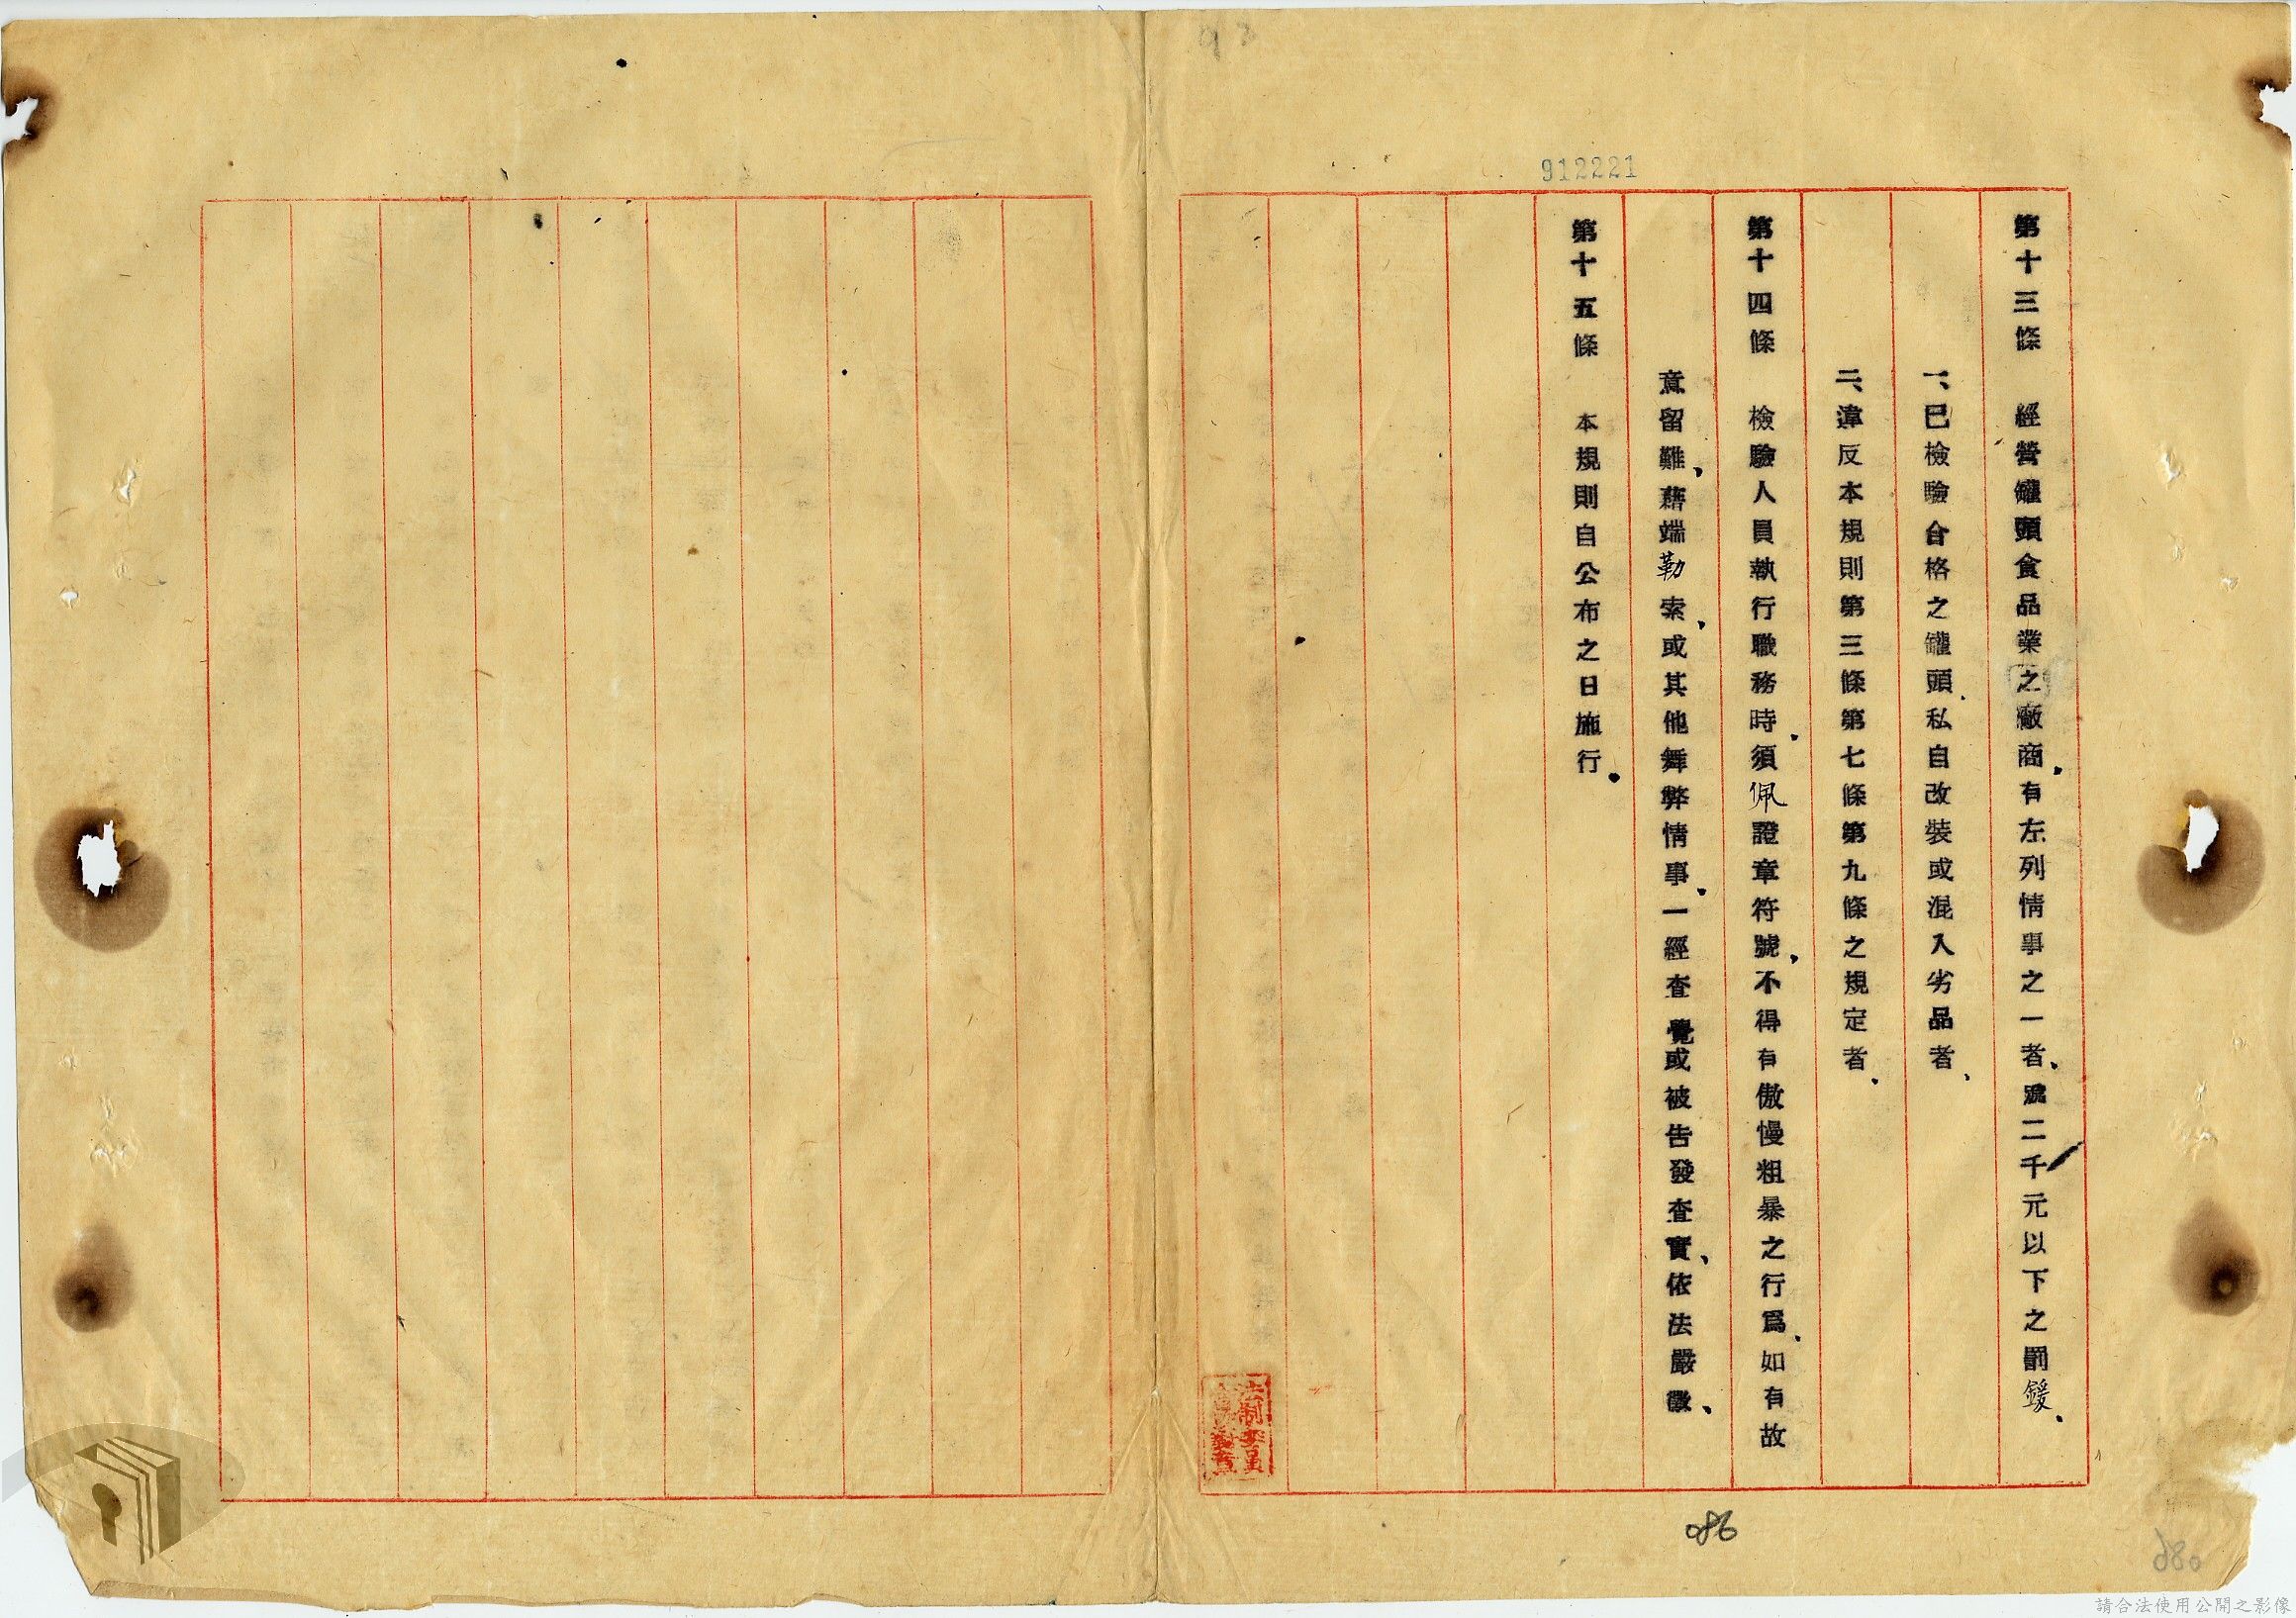 912221
第十三條　經營罐頭食品業之廠商、有左列情事之一者、處二千元以下之罰鍰、
一、已檢驗合格之罐頭、私自改裝或混入劣品者、
二、違反本規則第三條第七條第九條之規定者、
第十四條　檢驗人員執行職務時、須佩證章符號、不得有傲慢粗暴之行爲、如有故
意留難、藉端勒索、或其他舞弊情事、一經查覺或被告發查實、依法嚴徵、
第十五條　本規則自公布之日施行。
086
080
請合法使用公開之影像